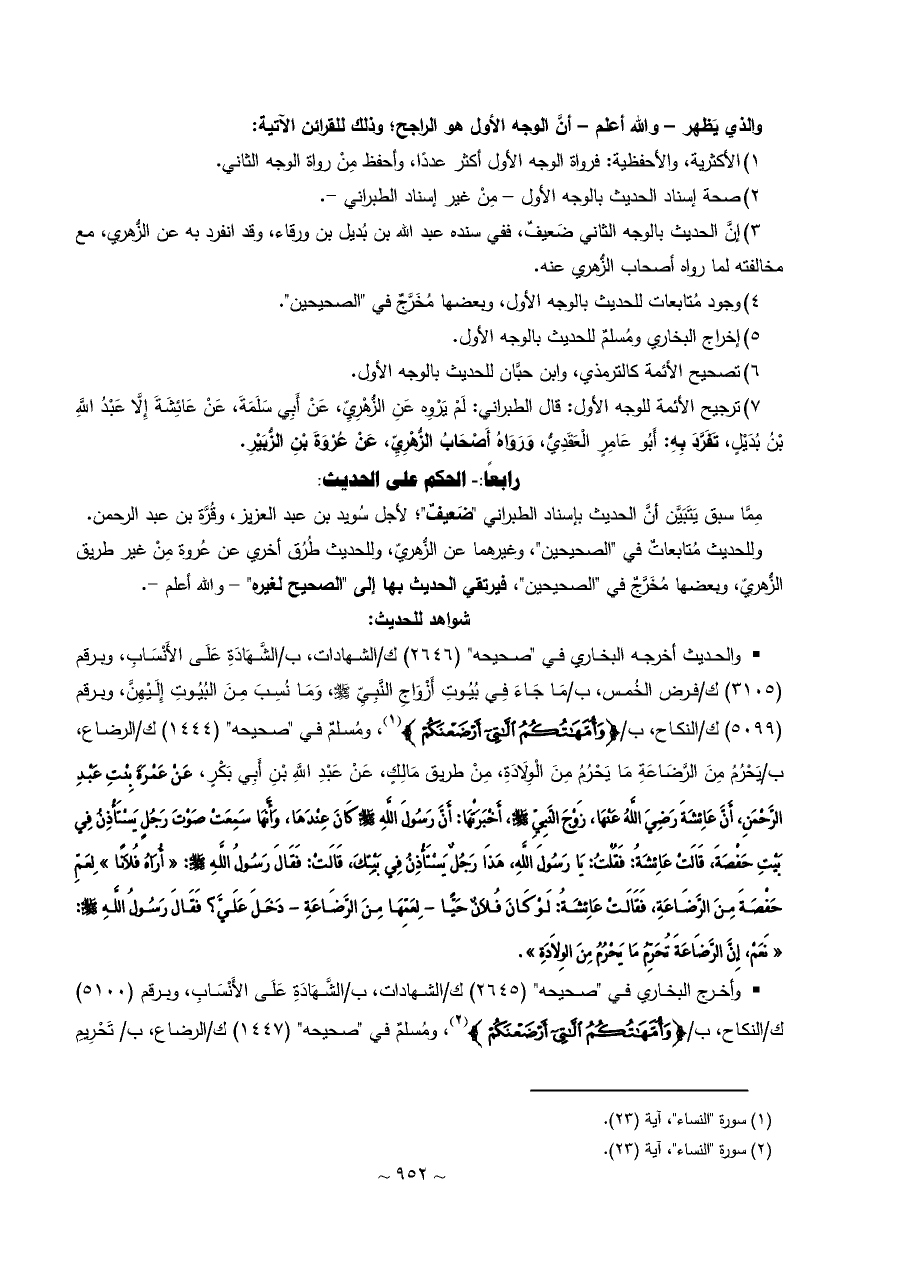 والذي يَظهر – والله أعلم – أنَّ الوجه الأول هو الراجح؛ وذلك للقرائن الآتية:
١) الأكثرية، والأحفظية: فرواة الوجه الأول أكثر عددًا، وأحفظ مِنْ رواة الوجه الثاني.
٢) صحة إسناد الحديث بالوجه الأول – مِنْ غير إسناد الطبراني –.
٣) إنَّ الحديث بالوجه الثاني ضَعيفٌ، ففي سنده عبد الله بن بُديل بن ورقاء، وقد انفرد به عن الزُّهري، مع
مخالفته لما رواه أصحاب الزُّهري عنه.
٤) وجود مُتابعات للحديث بالوجه الأول، وبعضها مُخَرَّجٌ في "الصحيحين".
٥) إخراج البخاري ومُسلمٌ للحديث بالوجه الأول.
٦) تصحيح الأئمة كالترمذي، وابن حبَّان للحديث بالوجه الأول.
٧) ترجيح الأئمة للوجه الأول: قال الطبراني: لَمْ يَرْوِه عَنِ الزُّهْرِيِّ، عَنْ أَبِي سَلَمَةَ، عَنْ عَائِشَةَ إِلَّا عَبْدُ اللَّهِ
بْنُ بُدَيْلٍ، تَفَرَّدَ بِهِ: أَبُو عَامِرٍ الْعَقَدِيُّ، وَرَوَاهُ أَصْحَابُ الزُّهْرِيِّ، عَنْ عُرْوَةَ بْنِ الزُّبَيْرِ.
رابعاً:- الحكم على الحديث:
مِمَّا سبق يَتَبَيَّن أنَّ الحديث بإسناد الطبراني "ضَعيفٌ"؛ لأجل سُويد بن عبد العزيز، وقُرَّة بن عبد الرحمن.
وللحديث مُتابعاتٌ في "الصحيحين"، وغيرهما عن الزُّهريّ، وللحديث طُرُق أخري عن عُروة مِنْ غير طريق
الزُّهريّ، وبعضها مُخَرَّجٌ في "الصحيحين"، فيرتقي الحديث بها إلى "الصحيح لغيره" – والله أعلم –.
شواهد للحديث:
▪ والحديث أخرجه البخاري في "صحيحه" (٢٦٤٦) ك/الشهادات، ب/الشَّهَادَةِ عَلَى الأَنْسَابِ، وبرقم
(٣١٠٥) ك/فرض الخُمس، ب/مَا جَاءَ فِي بُيُوتِ أَزْوَاجِ النَّبِيِّ ﷺ، وَمَا نُسِبَ مِنَ البُيُوتِ إِلَيْهِنَّ، وبرقم
(٥٠٩٩) ك/النكاح، ب/﴿وَأُمَّهَـٰتُكُمُ ٱلَّـٰتِىٓ أَرْضَعْنَكُمْ﴾(١)، ومُسلمٌ في "صحيحه" (١٤٤٤) ك/الرضاع،
ب/يَحْرُمُ مِنَ الرَّضَاعَةِ مَا يَحْرُمُ مِنَ الْوِلَادَةِ، مِنْ طريق مَالِكٍ، عَنْ عَبْدِ اللَّهِ بْنِ أَبِي بَكْرٍ، عَنْ عَمْرَةَ بِنْتِ عَبْدِ
الرَّحْمَنِ، أَنَّ عَائِشَةَ رَضِيَ اللَّهُ عَنْهَا، زَوْجَ النَّبِيِّ ﷺ، أَخْبَرَتْهَا: أَنَّ رَسُولَ اللَّهِ ﷺ كَانَ عِنْدَهَا، وَأَنَّهَا سَمِعَتْ صَوْتَ رَجُلٍ يَسْتَأْذِنُ فِي
بَيْتِ حَفْصَةَ، قَالَتْ عَائِشَةُ: فَقُلْتُ: يَا رَسُولَ اللَّهِ، هَذَا رَجُلٌ يَسْتَأْذِنُ فِي بَيْتِكَ، قَالَتْ: فَقَالَ رَسُولُ اللَّهِ ﷺ: « أُرَاهُ فُلاَنًا » لِعَمِّ
حَفْصَةَ مِنَ الرَّضَاعَةِ، فَقَالَتْ عَائِشَةُ: لَوْ كَانَ فُلاَنٌ حَيًّا – لِعَمِّهَا مِنَ الرَّضَاعَةِ – دَخَلَ عَلَيَّ؟ فَقَالَ رَسُولُ اللَّهِ ﷺ:
« نَعَمْ، إِنَّ الرَّضَاعَةَ تُحَرِّمُ مَا يَحْرُمُ مِنَ الوِلاَدَةِ ».
▪ وأخرج البخاري في "صحيحه" (٢٦٤٥) ك/الشهادات، ب/الشَّهَادَةِ عَلَى الأَنْسَابِ، وبرقم (٥١٠٠)
ك/النكاح، ب/﴿وَأُمَّهَـٰتُكُمُ ٱلَّـٰتِىٓ أَرْضَعْنَكُمْ﴾(٢)، ومُسلمٌ في "صحيحه" (١٤٤٧) ك/الرضاع، ب/ تَحْرِيمِ
(١) سورة "النساء"، آية (٢٣).
(٢) سورة "النساء"، آية (٢٣).
~ ٩٥٢ ~